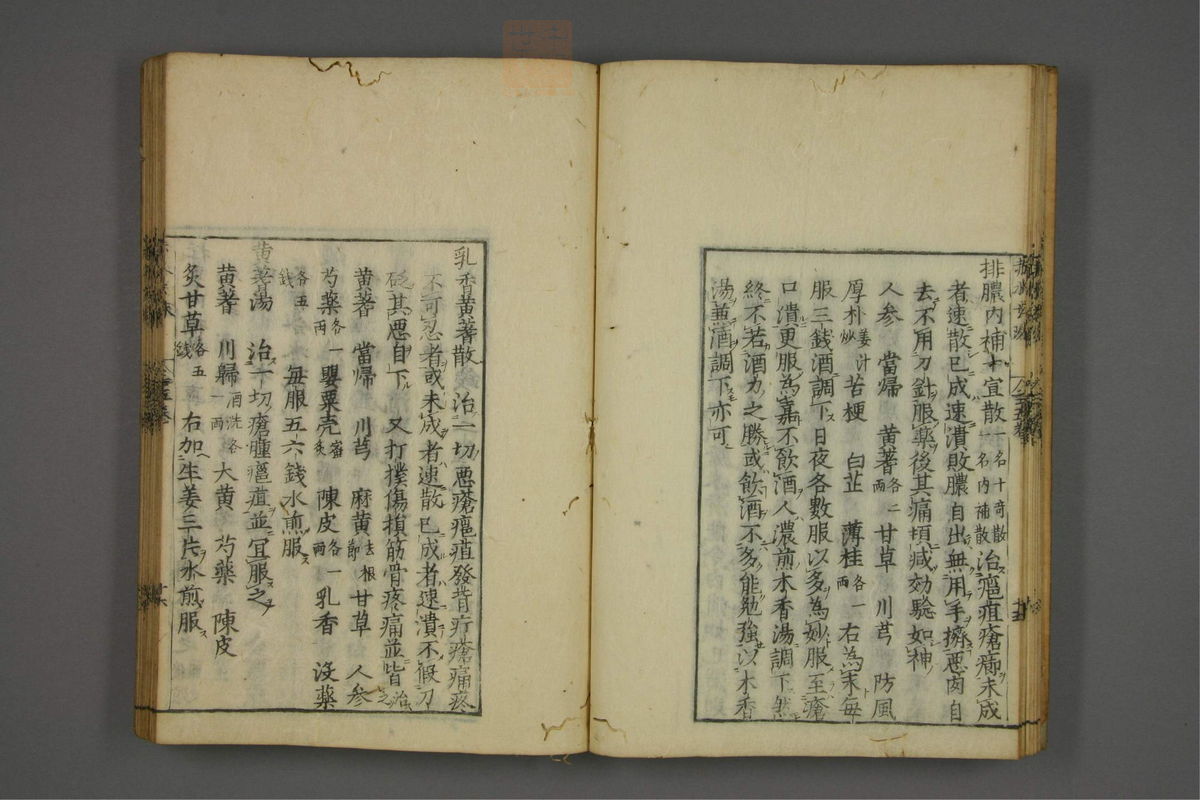 排膿内補十宣散一名十奇散一名内補散治癰疽瘡癤未成
者速散已成速潰敗膿自出無用手擠悪肉自
去不用刀針服藥後其痛頃减効驗如神
人参　當帰　黄蓍各二両　甘草　川芎　防風
厚朴姜汁炒　苦梗　白芷　薄桂各一両　右為末毎
服三錢酒調下日夜各數服以多為妙服至瘡
口潰更服為嘉不飲酒人濃煎木香湯調下然
終不若酒力之勝或飲酒不多能勉強以木香
湯兼酒調下亦可
乳香黄蓍散　治一切悪瘡癰疽發背疔瘡痛疼
不可忍者或未成者速散已成者速潰不假刀
砭其悪自下　又打撲傷損筋骨疼痛並皆治之
黄蓍　當帰　川芎　麻黄去根節　甘草　人参
芍藥各一両　罌粟壳蜜炙　陳皮各一両　乳香　没藥
各五錢　毎服五六錢水煎服
黄蓍湯　治一切瘡腫癰疽並冝服之
黄蓍　川歸酒洗各一両　大黄　芍藥　陳皮
炙甘草各五錢　右加生姜三片水煎服